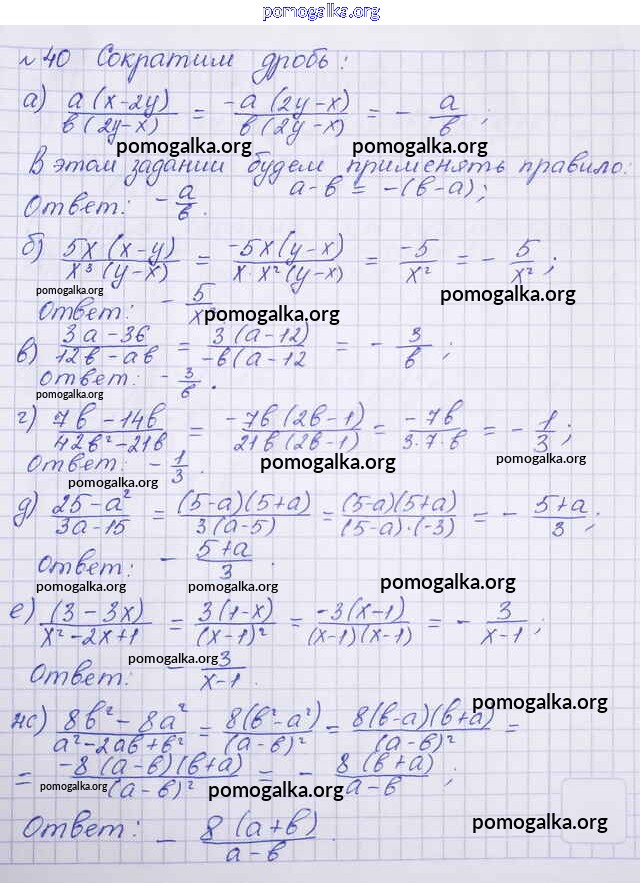 pomogalka.org
№40 Сократим дробь:
а) a(x-2y)/b(2y-x) = -a(2y-x)/b(2y-x) = - a/b;
pomogalka.org pomogalka.org
В этом задании будем применять правило:
a-b = -(b-a);
Ответ: - a/b.
б) 5x(x-y)/x³(y-x) = -5x(y-x)/x·x²(y-x) = -5/x² = - 5/x²;
pomogalka.org pomogalka.org
Ответ: - 5/x² pomogalka.org
в) 3a-36/12b-ab = 3(a-12)/-b(a-12 = - 3/b;
Ответ: - 3/b.
pomogalka.org
г) 7b-14b/42b²-21b = -7b(2b-1)/21b(2b-1) = -7b/3·7·b = - 1/3;
Ответ: - 1/3. pomogalka.org pomogalka.org
pomogalka.org
д) 25-a²/3a-15 = (5-a)(5+a)/3(a-5) = (5-a)(5+a)/(5-a)·(-3) = - 5+a/3;
Ответ: - 5+a/3.
pomogalka.org pomogalka.org pomogalka.org
е) (3-3x)/x²-2x+1 = 3(1-x)/(x-1)² = -3(x-1)/(x-1)(x-1) = - 3/x-1;
pomogalka.org
Ответ: - 3/x-1.
pomogalka.org
ж) 8b²-8a²/a²-2ab+b² = 8(b²-a²)/(a-b)² = 8(b-a)(b+a)/(a-b)² =
= -8(a-b)(b+a)/(a-b)² = - 8(b+a)/a-b;
pomogalka.org pomogalka.org
Ответ: - 8(a+b)/a-b.
pomogalka.org